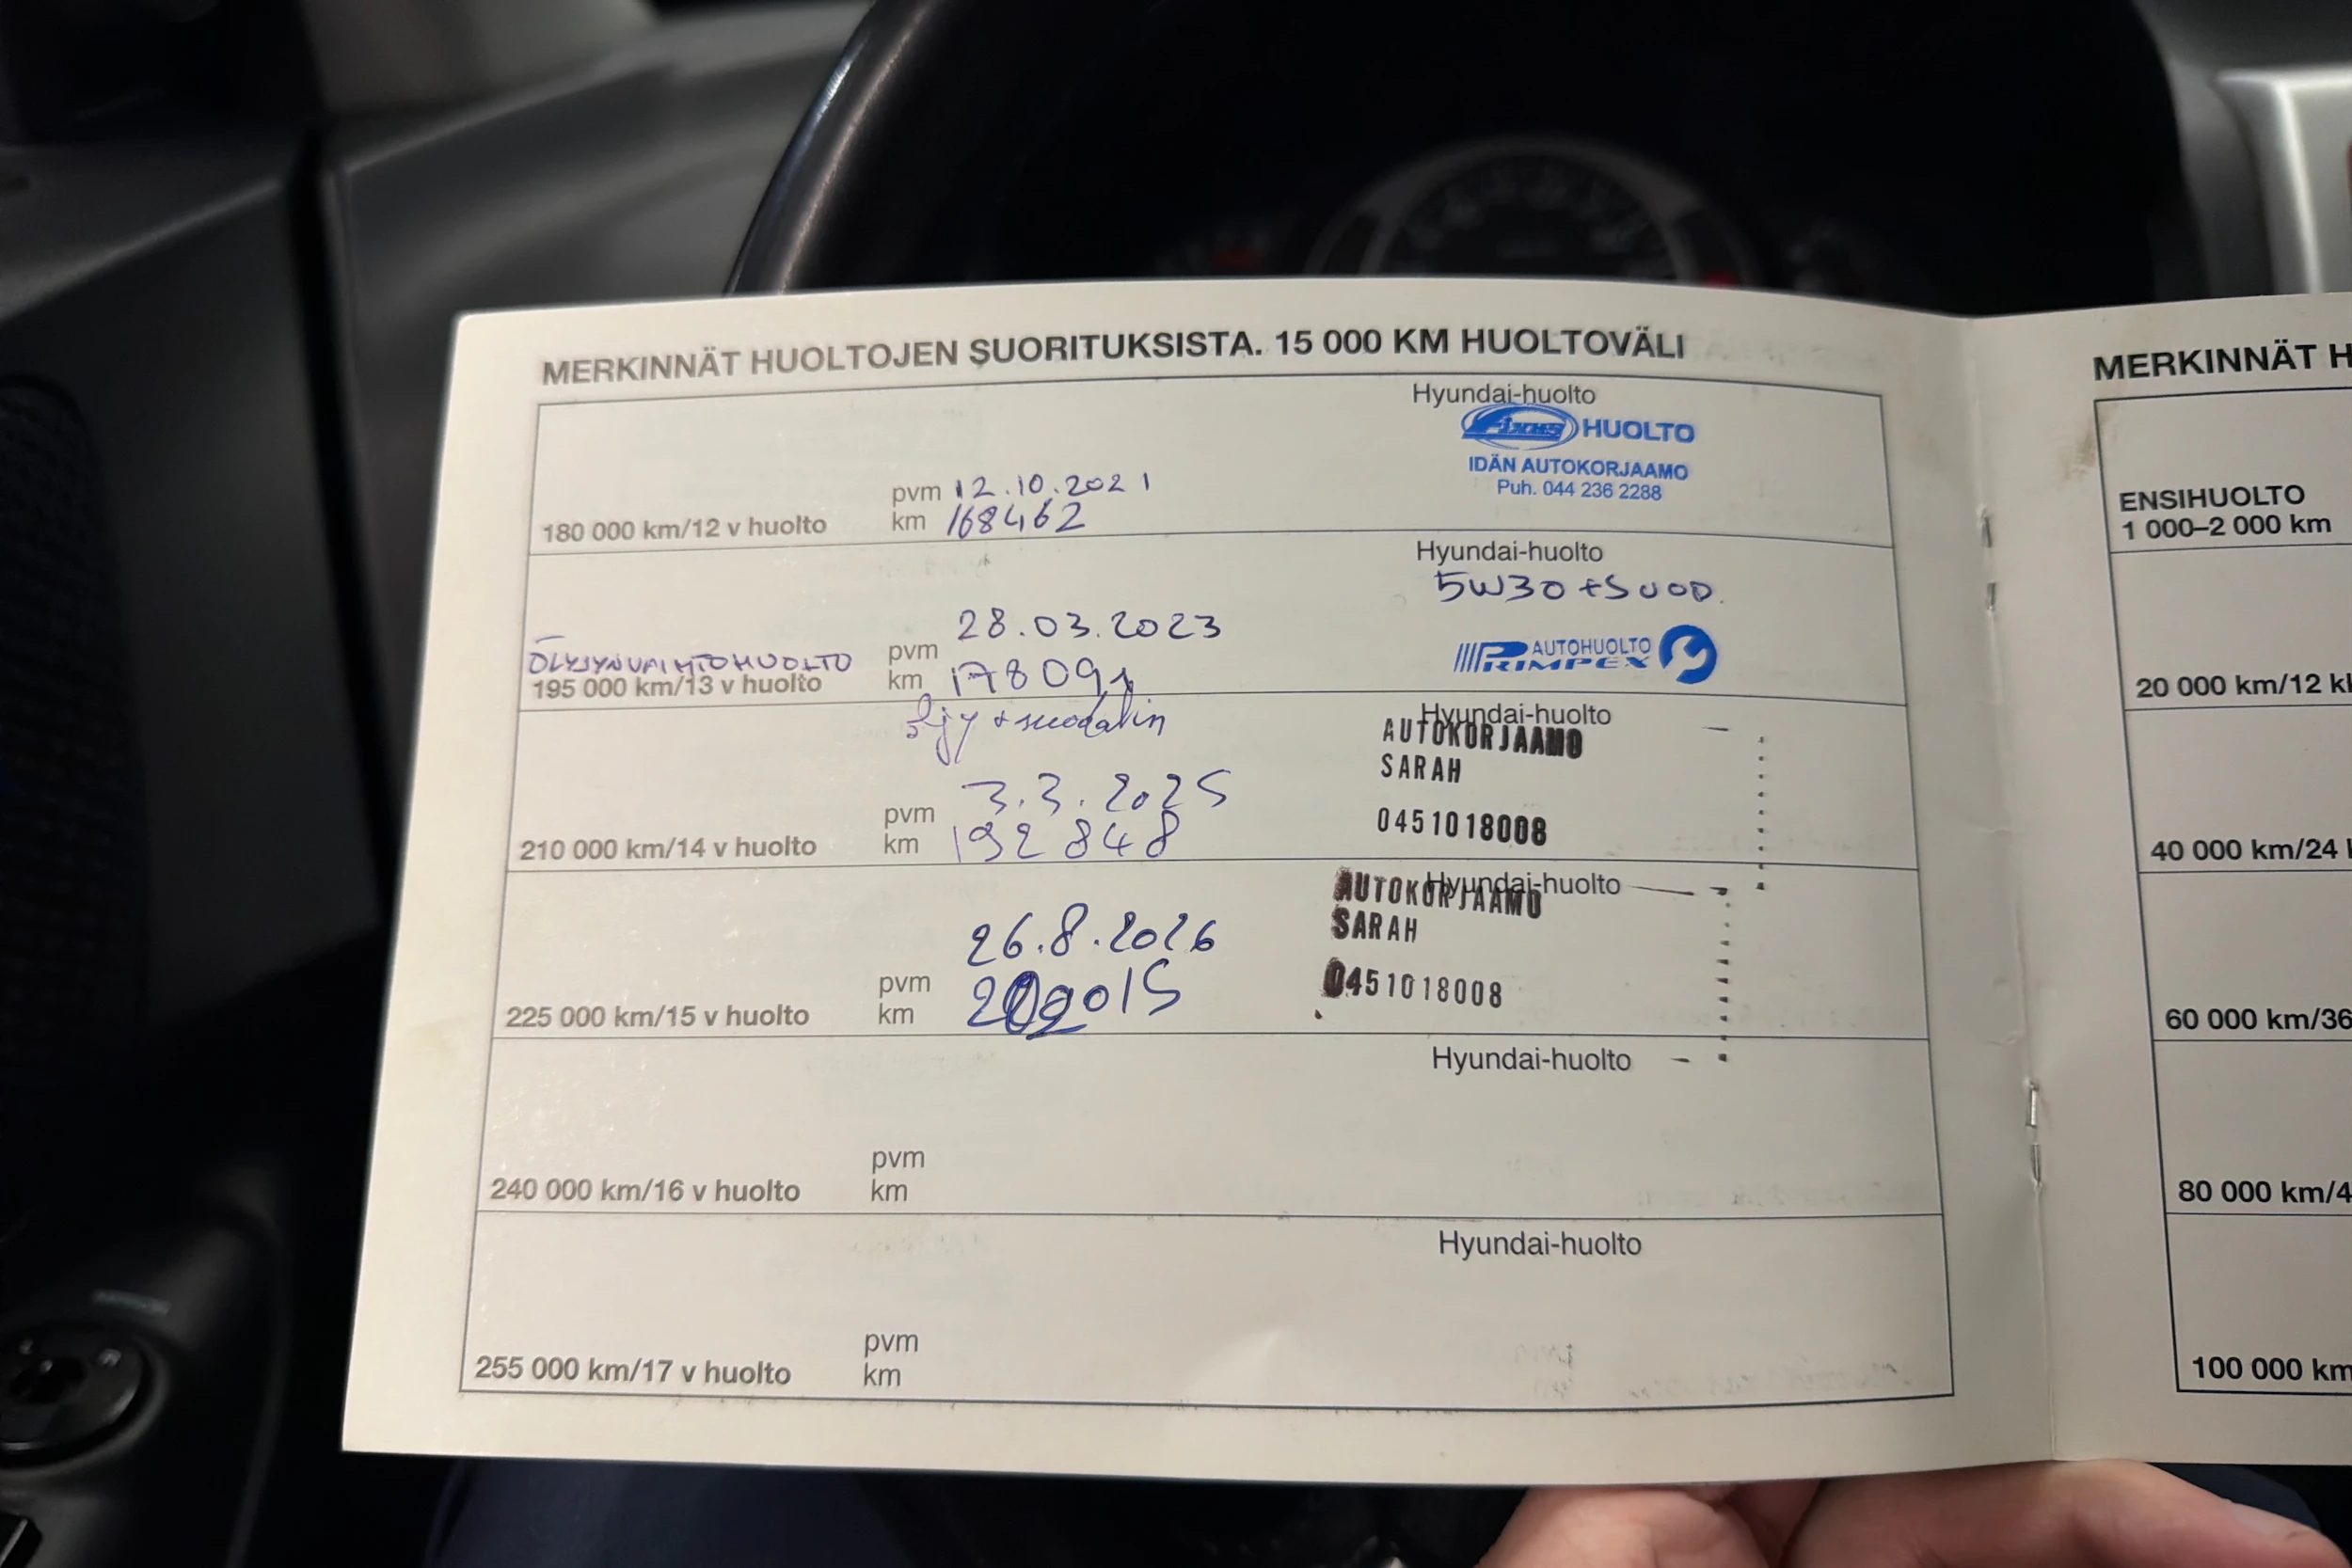 MERKINNÄT HUOLTOJEN SUORITUKSISTA. 15 000 KM HUOLTOVÄLI
Hyundai-huolto
Fixus HUOLTO
IDÄN AUTOKORJAAMO
Puh. 044 236 2288
pvm 12.10.2021
180 000 km/12 v huolto
km 168462
Hyundai-huolto
5W30 + SUOD.
28.03.2023
pvm
AUTOHUOLTO
PRIMPEX
ÖLYJYNVAIHTOHUOLTO
195 000 km/13 v huolto
km 178091
Hyundai-huolto
öljy + suodatin
AUTOKORJAAMO
SARAH
pvm 3.3.2025
0451018008
210 000 km/14 v huolto
km 192848
Hyundai-huolto
AUTOKORJAAMO
SARAH
26.8.2026
pvm
0451018008
225 000 km/15 v huolto
km
Hyundai-huolto
pvm
240 000 km/16 v huolto
km
Hyundai-huolto
pvm
255 000 km/17 v huolto
km
MERKINNÄT
ENSIHUOLTO
1 000–2 000 km
20 000 km/12
40 000 km/24
60 000 km/36
80 000 km/4
100 000 km